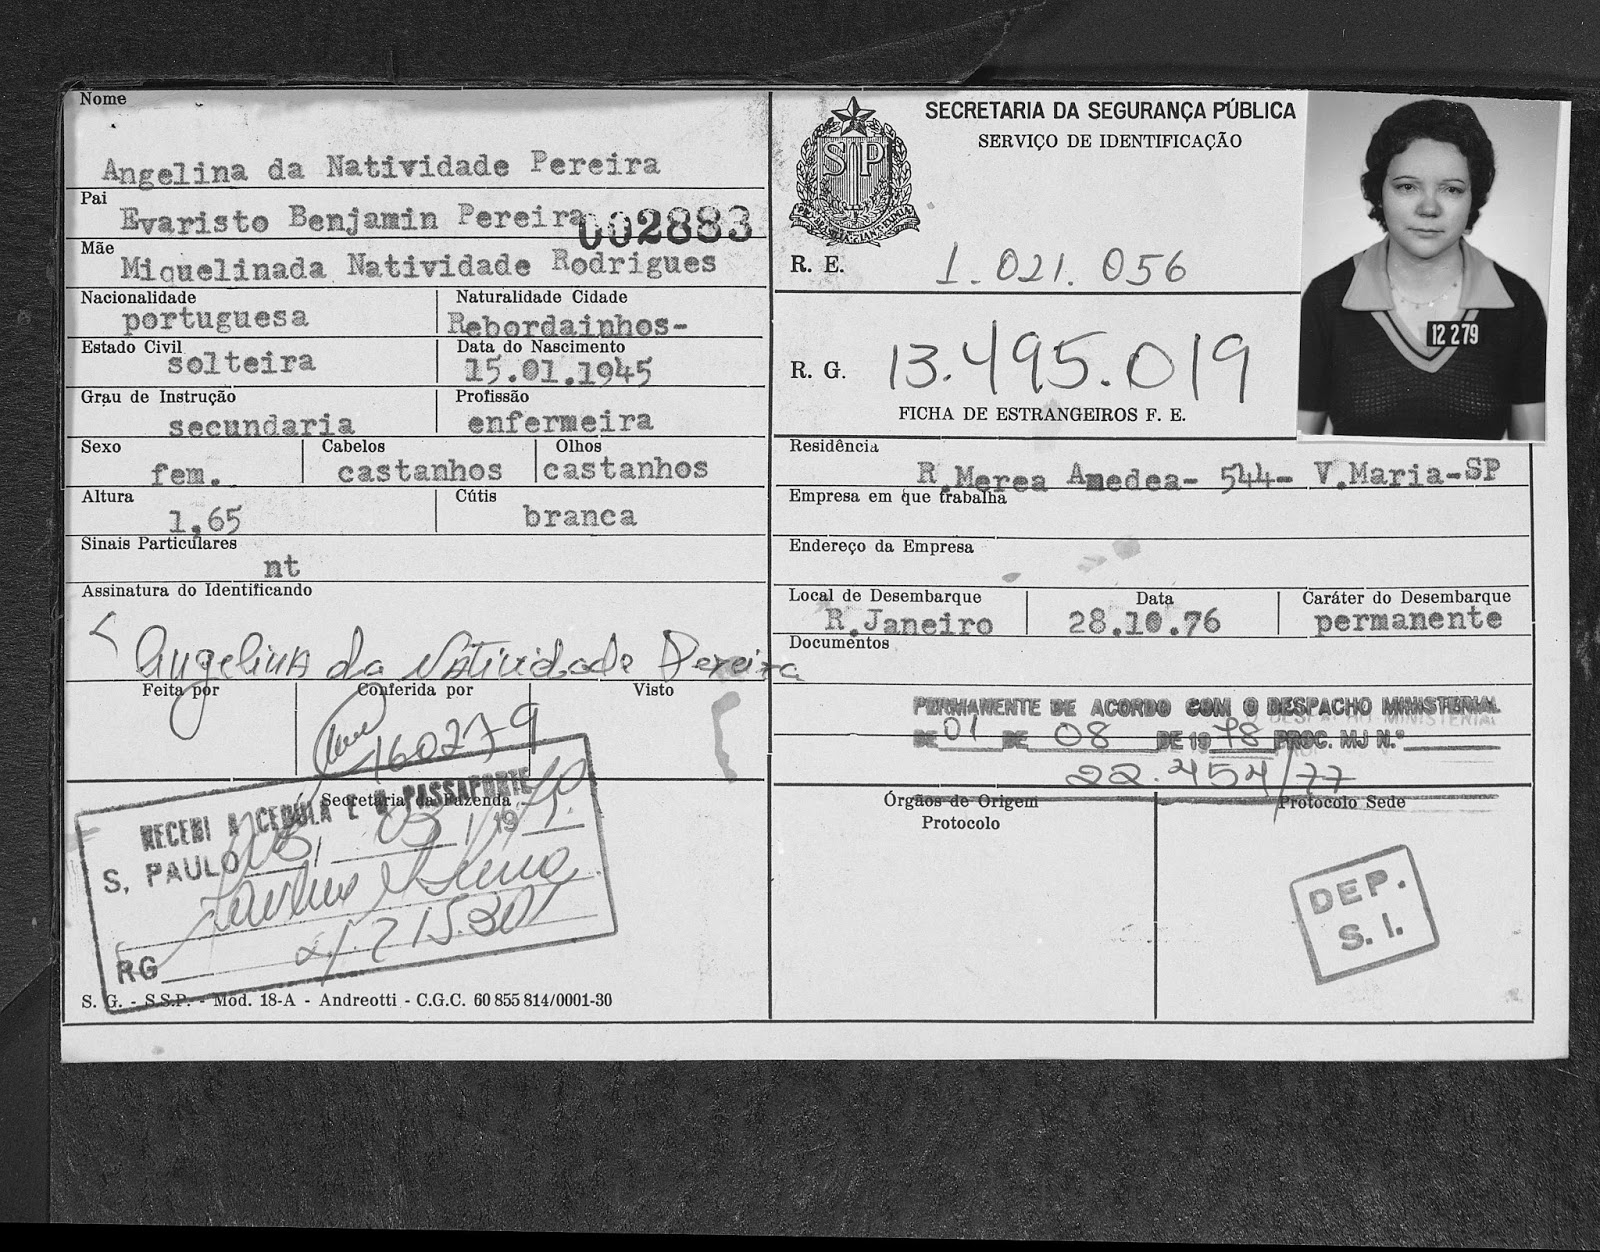 Nome
Angelina da Natividade Pereira
Pai
Evaristo Benjamin Pereira
002883
Mãe
Miquelinada Natividade Rodrigues
Nacionalidade
portuguesa
Naturalidade Cidade
Rebordainhos-
Estado Civil
solteira
Data do Nascimento
15.01.1945
Grau de Instrução
secundaria
Profissão
enfermeira
Sexo
fem.
Cabelos
castanhos
Olhos
castanhos
Altura
1,65
Cútis
branca
Sinais Particulares
nt
Assinatura do Identificando
Angelina da Natividade Pereira
Feita por
Conferida por
Visto
160279
Secretaria da Fazenda
RECEBI A CEDULA E O PASSAPORTE
S. PAULO
19
RG
S. G. - S.S.P. - Mod. 18-A - Andreotti - C.G.C. 60 855 814/0001-30
SECRETARIA DA SEGURANÇA PÚBLICA
SERVIÇO DE IDENTIFICAÇÃO
SP
R. E. 1.021.056
R. G. 13.495.019
FICHA DE ESTRANGEIROS F. E.
12 2 79
Residência
R.Merea Amedea- 544- V.Maria-SP
Empresa em que trabalha
Endereço da Empresa
Local de Desembarque
R.Janeiro
Data
28.10.76
Caráter do Desembarque
permanente
Documentos
PERMANENTE DE ACORDO COM O DESPACHO MINISTERIAL
DE 01 DE 08 DE 1978 PROC. MJ N.º
22.454/77
Órgãos de Origem
Protocolo
Protocolo Sede
DEP.
S. I.